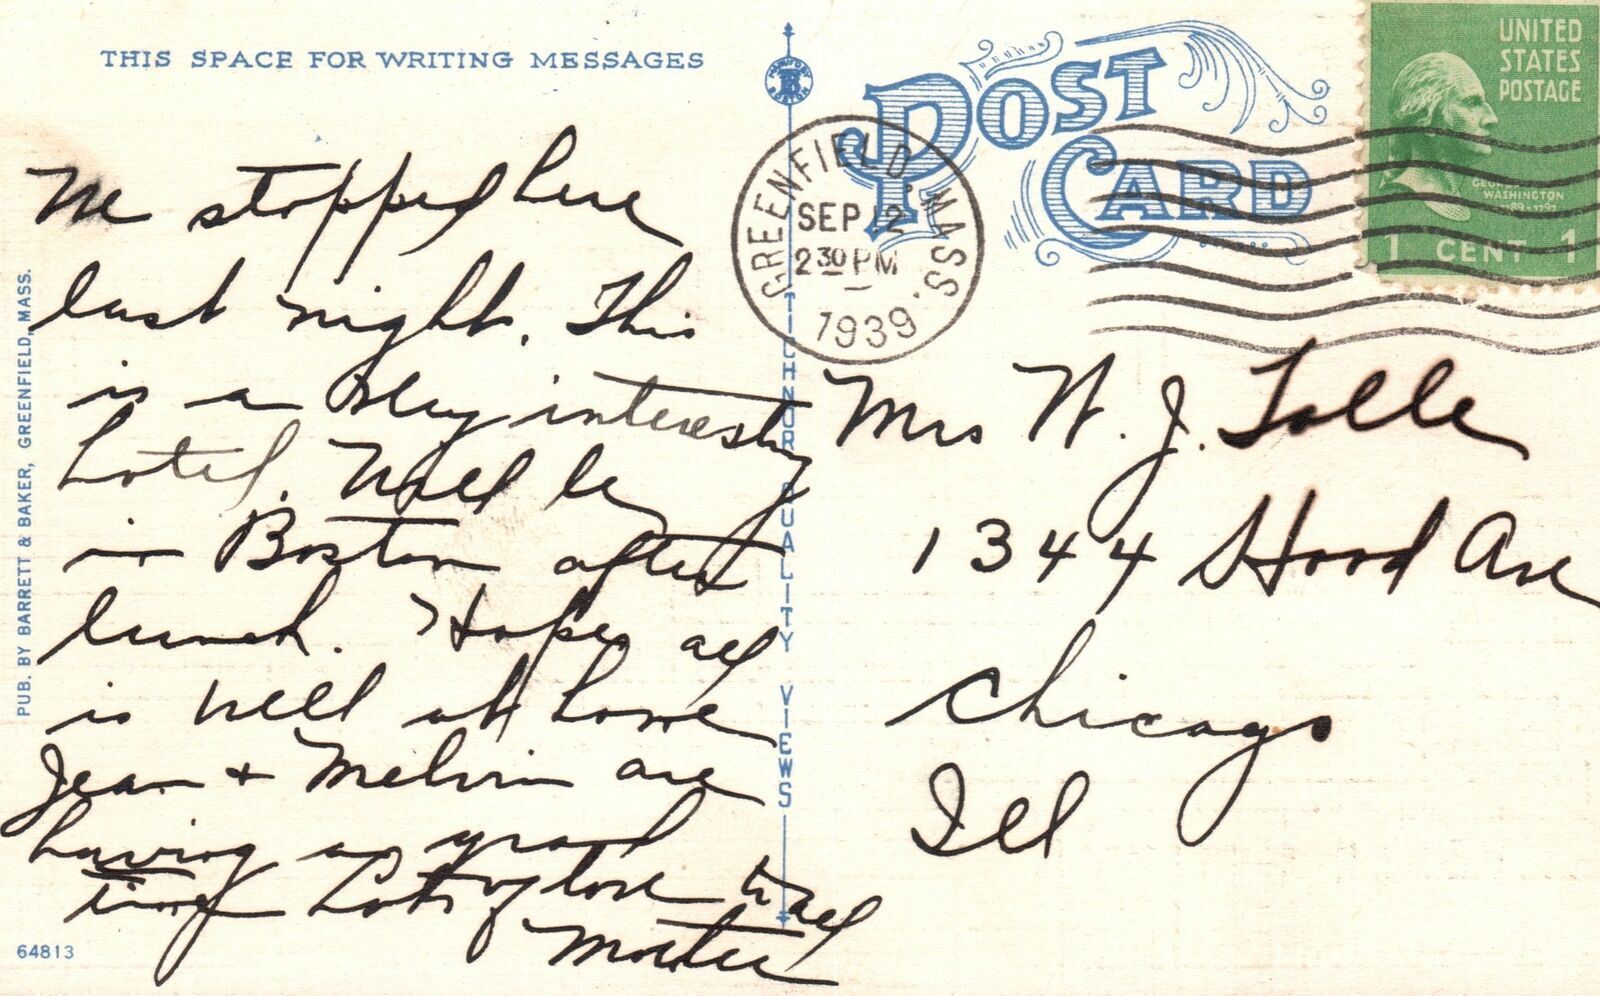 THIS SPACE FOR WRITING MESSAGES
POST
CARD
UNITED
STATES
POSTAGE
GEORGE
WASHINGTON
1 CENT 1
GREENFIELD, MASS.
SEP 12
2 30 PM
1939
We stopped here
last night. This
is a very interesting
hotel. Will be
in Boston after
lunch. Hope all
is well at home
Jean + Melvin are
having a grand
time Lots of love to all
Mother
Mrs W. J. Tolle
1344 Hood Ave
Chicago
Ill
PUB. BY BARRETT & BAKER, GREENFIELD, MASS.
TICHNOR QUALITY VIEWS
64813